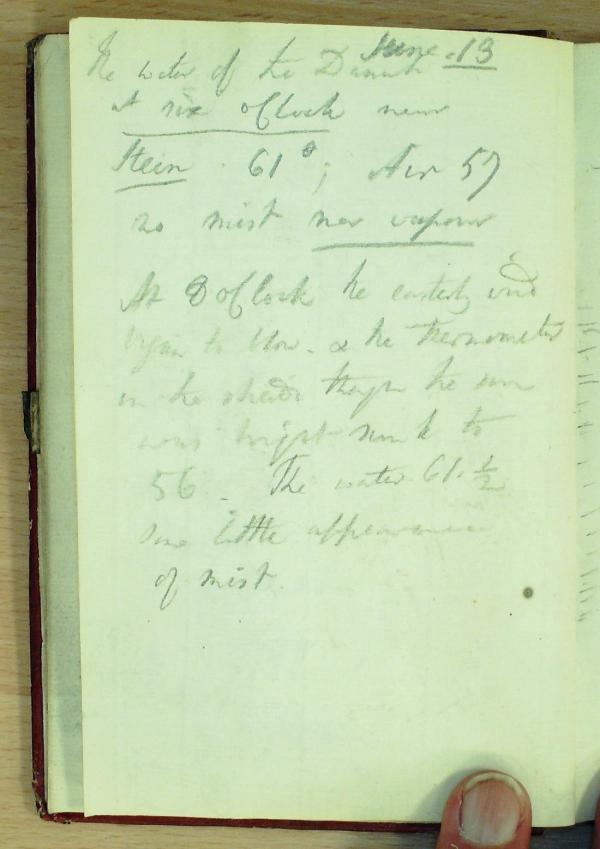 June. 13
The water of the Danube
at six o'Clock near
Stein. 61°; Air 57
no mist nor vapour
At 8 o'Clock the easterly wind
began to blow. & the thermometer
in the shade though the sun
was bright sunk to
56 _ The water 61.1/2
some little appearance
of mist.